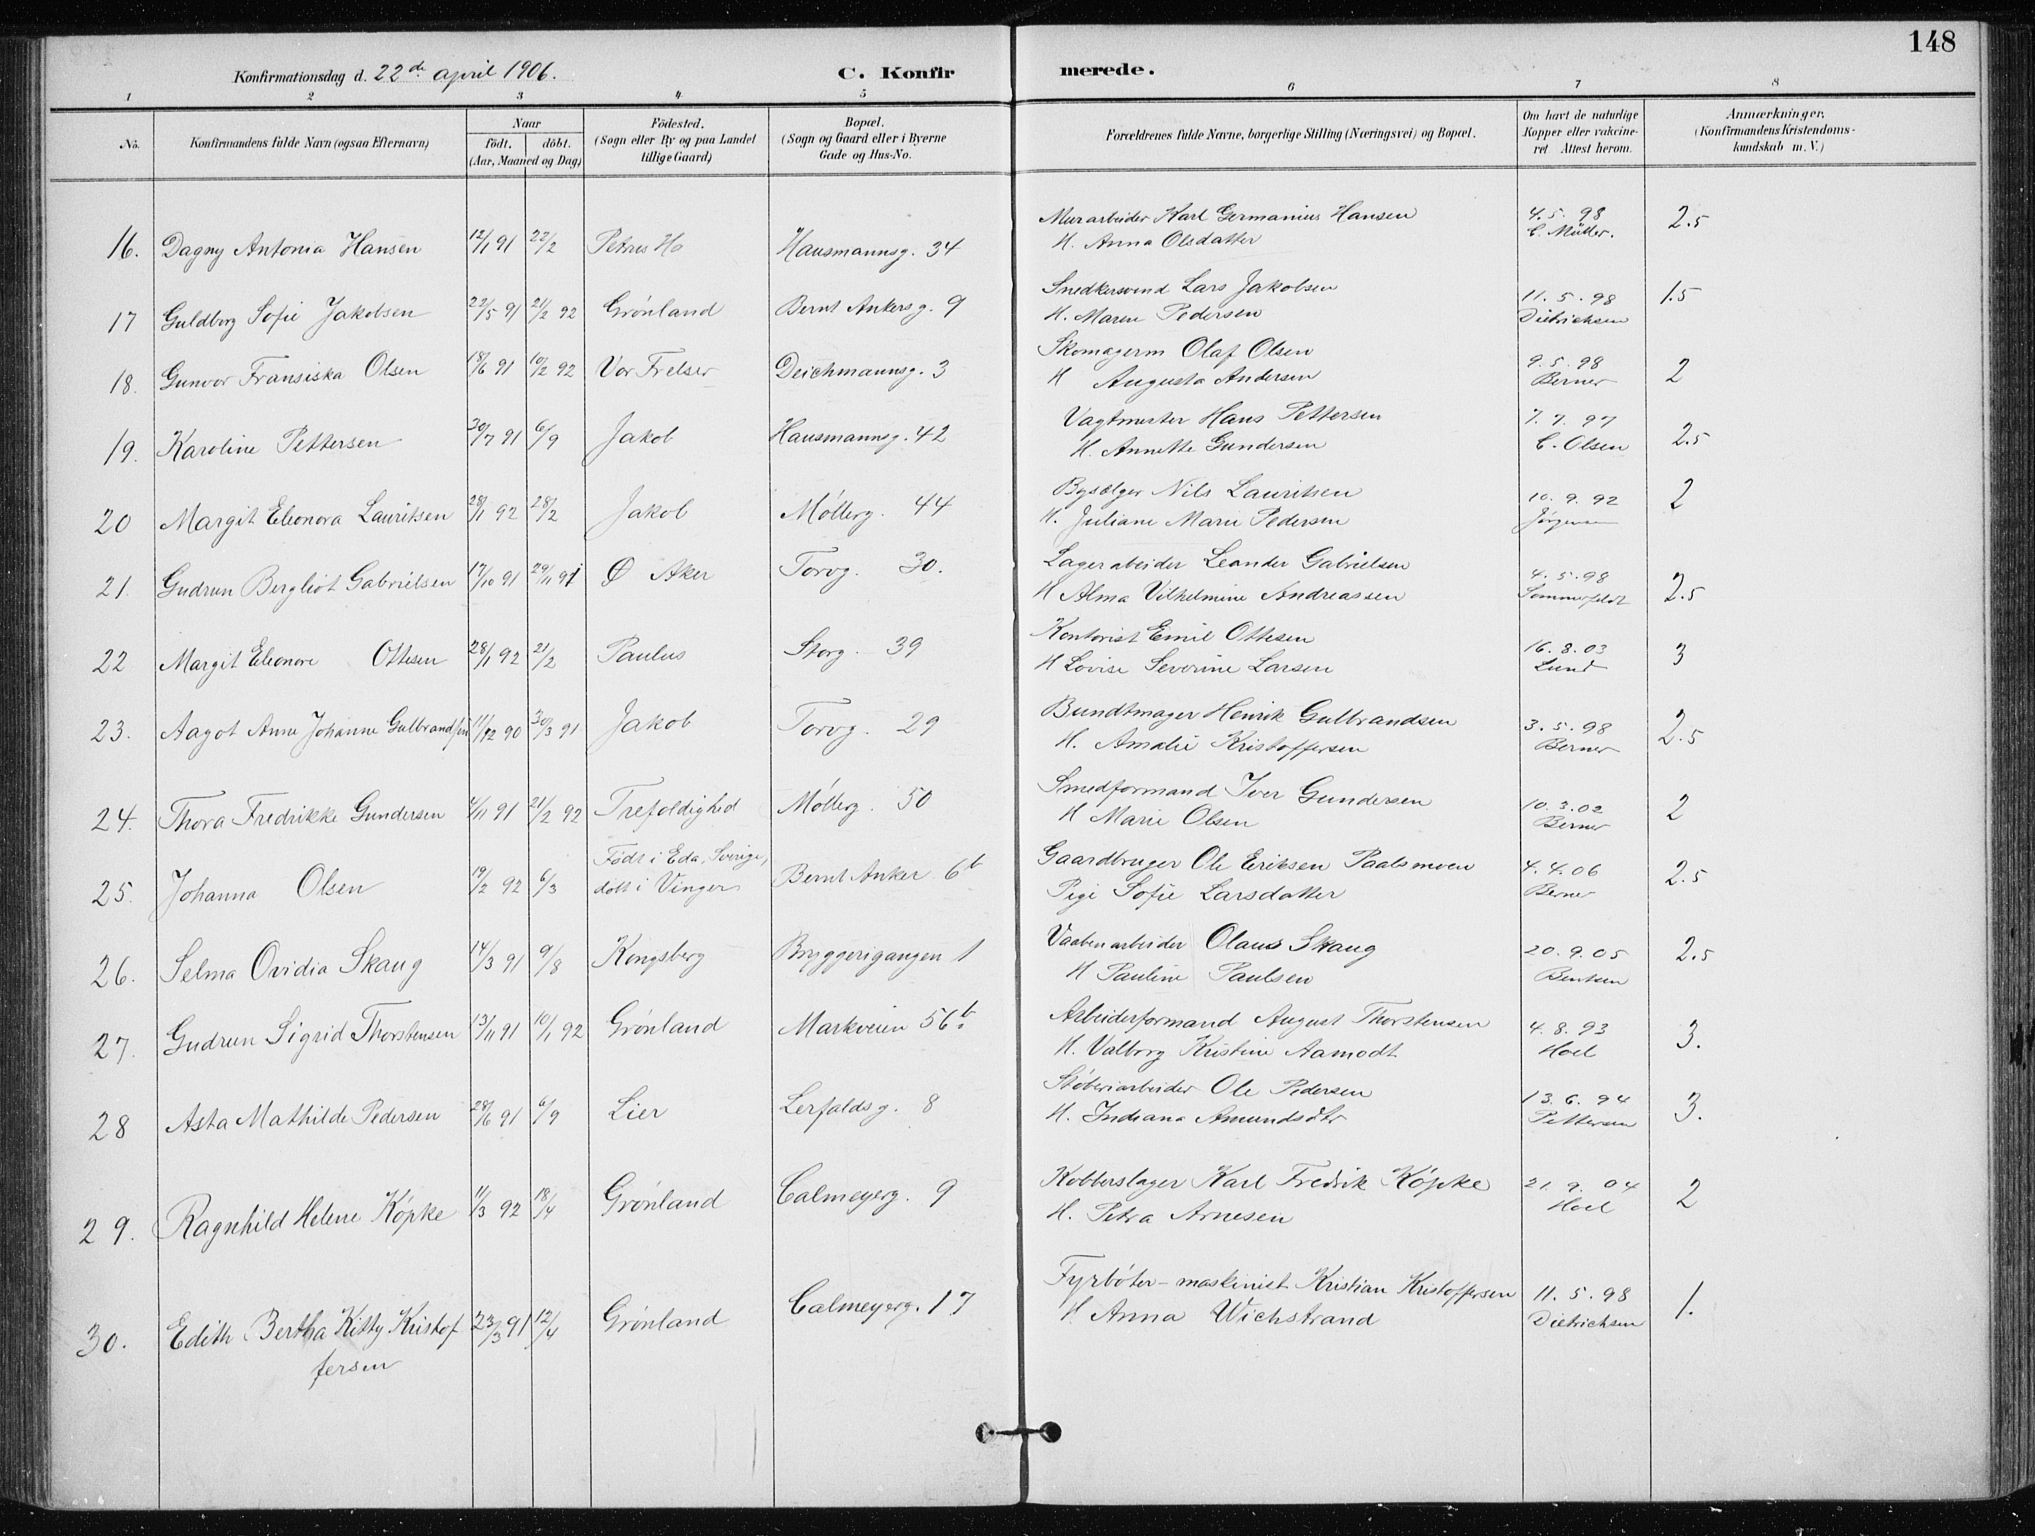 148
Konfirmationsdag d. 22de april 1906.
C. Konfir
merede.
1 2 3 4 5 6 7 8
No.
Konfirmandens fulde Navn (ogsaa Efternavn)
Naar
født. døbt.
(Aar, Maaned og Dag)
Fødested.
(Sogn eller By og paa Landet
tillige Gaard)
Bopæl.
(Sogn og Gaard eller i Byerne
Gade og Hus-No.
Forældrenes fulde Navne, borgerlige Stilling (Næringsvei) og Bopæl.
Om havt de naturlige
Kopper eller vakcine-
ret. Attest herom.
Anmærkninger.
(Konfirmandens Kristendoms-
kundskab m. V.)
16. Dagny Antonia Hansen 12/1 91 22/2 Petrus Hausmannsg. 34 Murarbeider Karl Germanius Hansen 4.5.98 2.5
H. Anna Olsdatter C. Müller.
17 Guldborg Sofie Jakobsen 22/5 91 21/2 92 Grønland Bernt Ankersg. 9 Snedkersvend Lars Jakobsen 11.5.98 1.5
H. Maren Pedersen Dietrichsen
18. Gunvor Fransiska Olsen 18/6 91 10/2 92 Vor Frelser Deichmannsg. 3 Skomagerm Olaf Olsen 9.5.98 2
H Augusta Andersen Berner
19. Karoline Pettersen 20/7 91 6/9 Jakob Hausmannsg. 42 Vagtmester Hans Pettersen 7.7.97 2.5
H. Annette Gundersen C. Olsen
20 Margit Eleonora Lauritsen 28/1 92 28/2 Jakob Møllerg. 44 Bysælger Nils Lauritsen 10.9.92 2
H. Juliane Marie Pedersen Jørgensen
21. Gudrun Bergliot Gabrielsen 17/10 91 29/11 91 Ø Aker Torvg. 30. Lagerarbeider Leander Gabrielsen 4.5.98 2.5
H Alma Vilhelmine Andreassen Sommerfeldt
22 Margit Eleonore Ottesen 28/1 92 21/2 Paulus Storg. 39 Kontorist Emil Ottesen 16.8.03 3
H Lovise Severine Larsen Lund
23. Aagot Anna Johanne Gulbrandsen 11/12 90 30/3 91 Jakob Torvg. 29 Bundtmager Henrik Gulbrandsen 3.5.98 2.5
H. Amalie Kristoffersen Berner
24. Thora Fredrikke Gundersen 4/11 91 21/2 92 Trefoldighed Møllerg. 50 Smedformand Iver Gundersen 10.3.02 2
H Marie Olsen Berner
25. Johanna Olsen 19/2 92 6/3 Født i Eda, Sverige, Bernt Anker 6b Gaardbruger Ole Eriksen Paalsmoen 4.4.06 2.5
døbt i Vinger Pige Sofie Larsdatter Berner
26. Selma Ovidia Skaug 14/3 91 9/8 Kongsberg Bryggerigangen 1 Vaabenarbeider Olaus Skaug 20.9.05 2.5
H Pauline Paulsen Bentsen
27. Gudrun Sigrid Thorstensen 13/11 91 10/1 92 Grønland Markveien 56b. Arbeiderformand August Thorstensen 4.8.93 3.
H. Valborg Kristine Aamodt Hoel
28 Asta Mathilde Pedersen 28/6 91 6/9 Lier Lerfaldsg. 8 Støberiarbeider Ole Pedersen 13.6.94 3.
H. Indiana Amundsdtr Pettersen
29. Ragnhild Helene Køpke 11/3 92 18/4 Grønland Calmeyerg. 9 Kobberslager Karl Fredrik Køpke 21.9.04 2
H. Petra Arnesen Hoel
30. Edith Bertha Kitty Kristof 23/3 91 12/4 Grønland Calmeyerg. 17 Fyrbøter-maskinist Kristian Kristoffersen 11.5.98 1.
fersen H Anna Wichstrand Dietrichsen